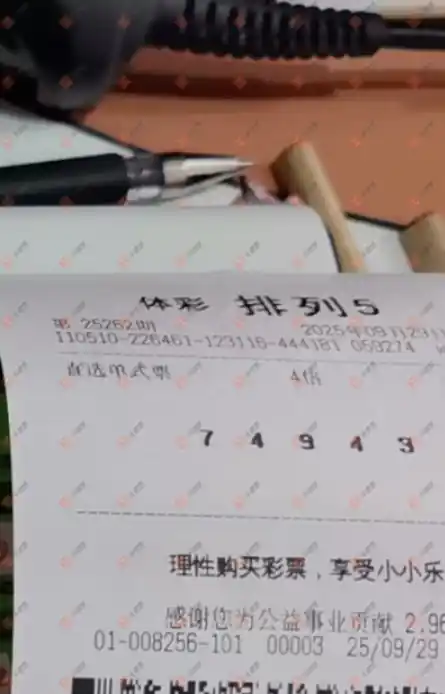 体彩 排列5
第 25262期 2025年09月29日
110510-226461-123116-444181 059274
直选单式票 4倍
7 4 9 4 3
理性购买彩票，享受小小乐
感谢您为公益事业贡献 2.96
01-008256-101 00003 25/09/29